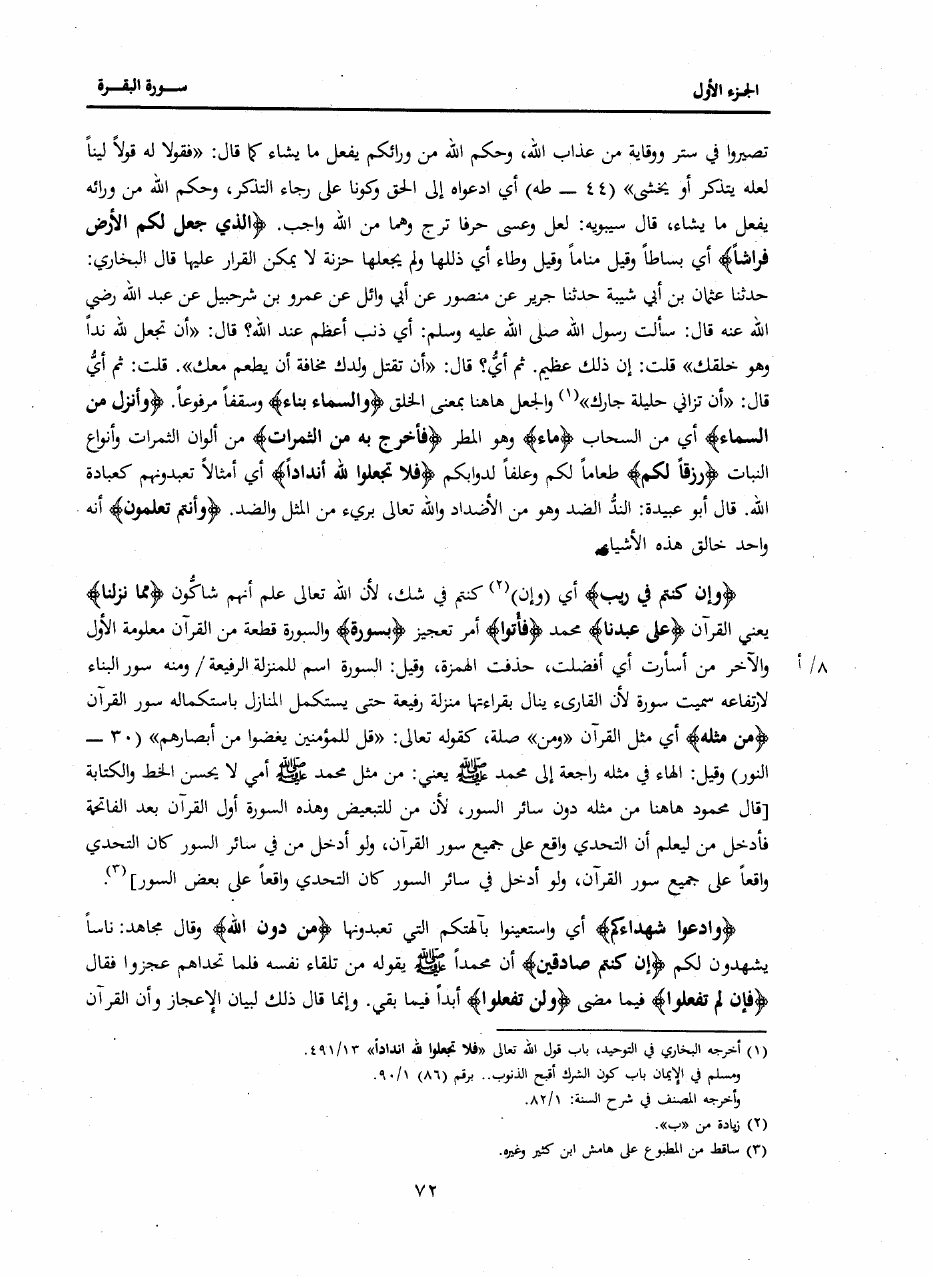 الجزء الأول
سورة البقرة
تصيروا في ستر ووقاية من عذاب الله، وحكم الله من ورائكم يفعل ما يشاء كما قال: «فقولا له قولاً ليناً
لعله يتذكر أو يخشى» (٤٤ ــ طه) أي ادعواه إلى الحق وكونا على رجاء التذكر، وحكم الله من ورائه
يفعل ما يشاء، قال سيبويه: لعل وعسى حرفا ترج وهما من الله واجب. ﴿الذي جعل لكم الأرض
فراشاً﴾ أي بساطاً وقيل مناماً وقيل وطاء أي ذللها ولم يجعلها حزنة لا يمكن القرار عليها قال البخاري:
حدثنا عثمان بن أبي شيبة حدثنا جرير عن منصور عن أبي وائل عن عمرو بن شرحبيل عن عبد الله رضي
الله عنه قال: سألت رسول الله صلى الله عليه وسلم: أي ذنب أعظم عند الله؟ قال: «أن تجعل لله نداً
وهو خلقك» قلت: إن ذلك عظيم. ثم أيُّ؟ قال: «أن تقتل ولدك مخافة أن يطعم معك». قلت: ثم أيُّ
قال: «أن تزاني حليلة جارك»(١) والجعل هاهنا بمعنى الخلق ﴿والسماء بناء﴾ وسقفاً مرفوعاً. ﴿وأنزل من
السماء﴾ أي من السحاب ﴿ماء﴾ وهو المطر ﴿فأخرج به من الثمرات﴾ من ألوان الثمرات وأنواع
النبات ﴿رزقاً لكم﴾ طعاماً لكم وعلفاً لدوابكم ﴿فلا تجعلوا لله أنداداً﴾ أي أمثالاً تعبدونهم كعبادة
الله. قال أبو عبيدة: الندُّ الضد وهو من الأضداد والله تعالى بريء من المثل والضد. ﴿وأنتم تعلمون﴾ أنه
واحد خالق هذه الأشياء.
﴿وإن كنتم في ريب﴾ أي (وإن)(٢) كنتم في شك، لأن الله تعالى علم أنهم شاكُّون ﴿مما نزلنا﴾
يعني القرآن ﴿على عبدنا﴾ محمد ﴿فأتوا﴾ أمر تعجيز ﴿بسورة﴾ والسورة قطعة من القرآن معلومة الأول
والآخر من أسأرت أي أفضلت، حذفت الهمزة، وقيل: السورة اسم للمنزلة الرفيعة / ومنه سور البناء
٨/ أ
لارتفاعه سميت سورة لأن القارىء ينال بقراءتها منزلة رفيعة حتى يستكمل المنازل باستكماله سور القرآن
﴿من مثله﴾ أي مثل القرآن «ومن» صلة، كقوله تعالى: «قل للمؤمنين يغضوا من أبصارهم» (٣٠ ــ
النور) وقيل: الهاء في مثله راجعة إلى محمد ﷺ يعني: من مثل محمد ﷺ أمي لا يحسن الخط والكتابة
[قال محمود هاهنا من مثله دون سائر السور، لأن من للتبعيض وهذه السورة أول القرآن بعد الفاتحة
فأدخل من ليعلم أن التحدي واقع على جميع سور القرآن، ولو أدخل من في سائر السور كان التحدي
واقعاً على جميع سور القرآن، ولو أدخل في سائر السور كان التحدي واقعاً على بعض السور](٣).
﴿وادعوا شهداءكم﴾ أي واستعينوا بآلهتكم التي تعبدونها ﴿من دون الله﴾ وقال مجاهد: ناساً
يشهدون لكم ﴿إن كنتم صادقين﴾ أن محمداً ﷺ يقوله من تلقاء نفسه فلما تحداهم عجزوا فقال
﴿فإن لم تفعلوا﴾ فيما مضى ﴿ولن تفعلوا﴾ أبداً فيما بقي. وإنما قال ذلك لبيان الإعجاز وأن القرآن
(١) أخرجه البخاري في التوحيد، باب قول الله تعالى «فلا تجعلوا لله انداداً» ٤٩١/١٣.
ومسلم في الإيمان باب كون الشرك أقبح الذنوب.. برقم (٨٦) ٩٠/١.
وأخرجه المصنف في شرح السنة: ٨٢/١.
(٢) زيادة من «ب».
(٣) ساقط من المطبوع على هامش ابن كثير وغيره.
٧٢